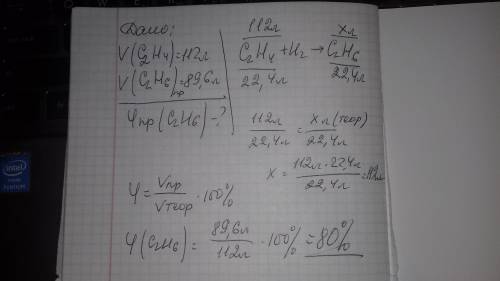 Дано:
V(C₂H₄)=112л
V(C₂H₆)пр=89,6л
φпр(C₂H₆)-?
112л xл
C₂H₄ + H₂ → C₂H₆
22,4л 22,4л
112л / 22,4л = xл(теор) / 22,4л
x = 112л·22,4л / 22,4л = 112л
φ = Vпр / Vтеор · 100%
φ(C₂H₆) = 89,6л / 112л · 100% = 80%
intel
inside